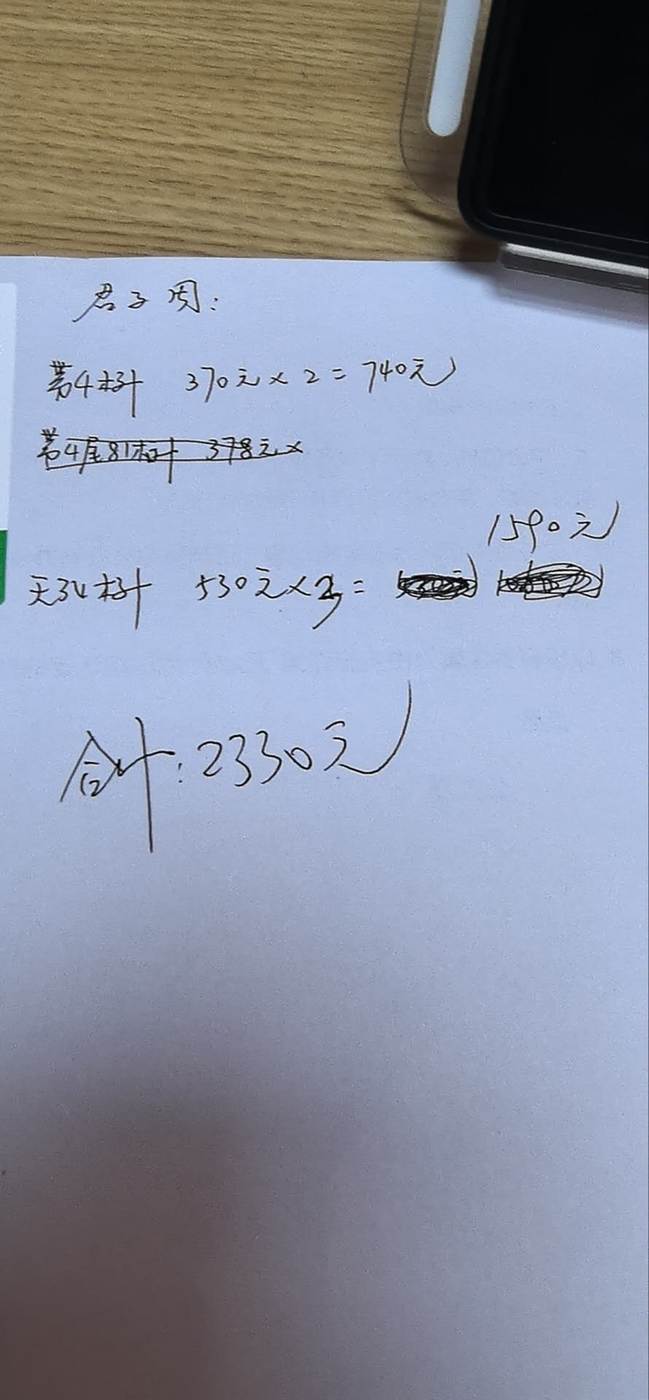 君子周:
第4封 370元×2=740元
第4尾81封 378元×
1590元
天34封 530元×3=
合计:2330元